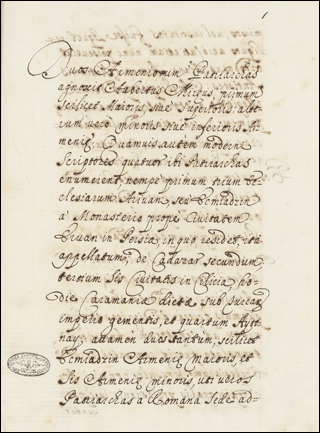 Duos Armeniorum Patriarchas
agnovit Aubertus Mireus primum
scilicet Maioris, sive superioris: alte-
rum vero minoris sive inferioris Ar-
meniæ. Quamvis autem moderni
Scriptores quatuor ibi Patriarchas
enumerent, nempe primum trium Ec-
clesiarum Arivan, seu Ecmiadzin
à Monasterio prope Civitatem
Erivan in Persia, in quo residet, ita
appellatum; de Cadazar secundum,
tertium Sis Civitatis in Cilicia, ho-
die Caramania dictæ sub
imperio gementis, et quartum
attamen duos tantum, scilicet
Ecmiadzin Armeniæ Maioris, et
Sis Armeniæ minoris, uti veros
Patriarchas à Romana Sede ad-